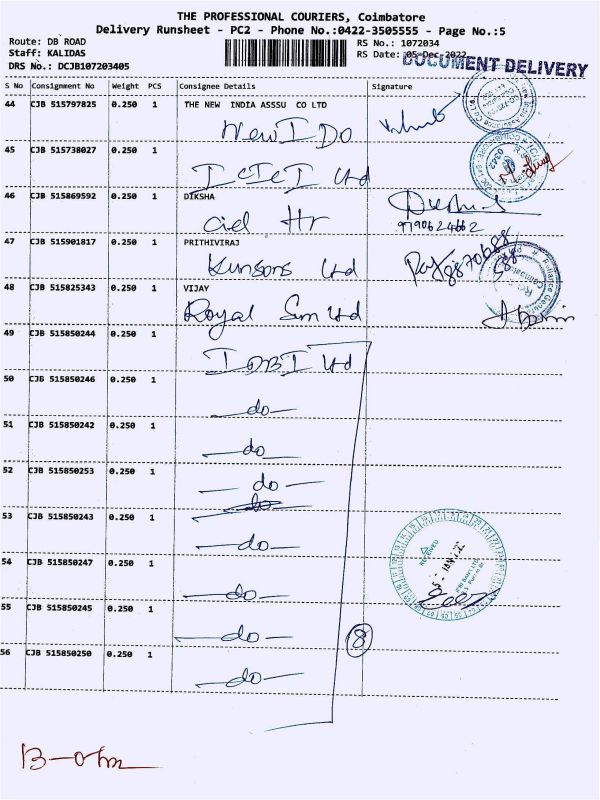 THE PROFESSIONAL COURIERS, Coimbatore
Delivery Runsheet - PC2 - Phone No.:0422-3505555 - Page No.:5
Route: DB ROAD
Staff: KALIDAS
DRS No.: DCJB107203405
RS No.: 1072034
RS Date: 05-Dec-2022
DOCUMENT DELIVERY
S No Consignment No Weight PCS Consignee Details Signature
44 CJB 515797825 0.250 1 THE NEW INDIA ASSSU CO LTD
New I Do
45 CJB 515738027 0.250 1
ICICI Ltd
46 CJB 515869592 0.250 1 DIKSHA
9790624662
47 CJB 515901817 0.250 1 PRITHIVIRAJ
Kunsons Ltd
48 CJB 515825343 0.250 1 VIJAY
Royal Sun Ltd
49 CJB 515850244 0.250 1
IDBI Ltd
50 CJB 515850246 0.250 1
—do—
51 CJB 515850242 0.250 1
—do—
52 CJB 515850253 0.250 1
—do—
53 CJB 515850243 0.250 1
—do—
54 CJB 515850247 0.250 1
—do—
55 CJB 515850245 0.250 1
—do—
8
56 CJB 515850250 0.250 1
—do—
RECEIVED